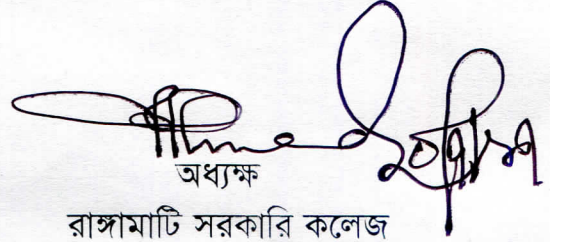 অধ্যক্ষ
রাঙ্গামাটি সরকারি কলেজ